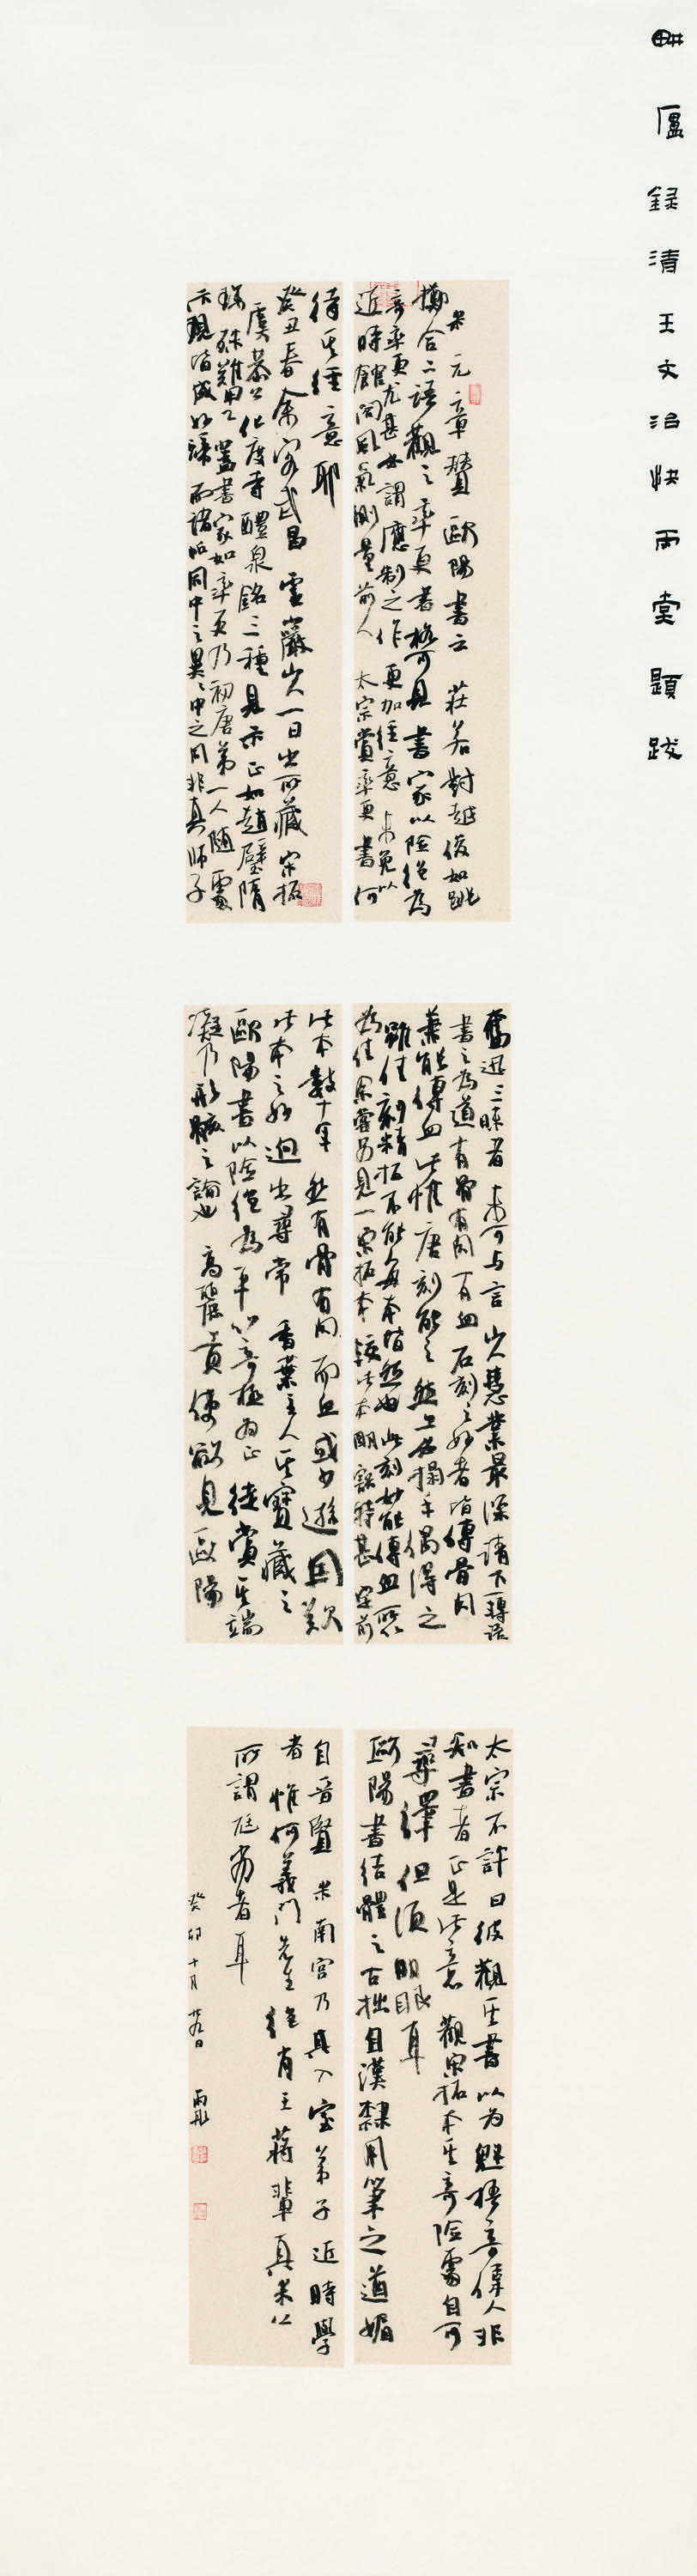 廬録清王文治快雨堂題跋
米元章贊歐陽書云莊若對越俊如跳
擲合二語觀之率更書格可見書家以險絕為
奇率更尤甚如謂應制之作更加經意未免以
近時館閣風氣測量前人太宗賞率更書何
待其經意耶
癸丑春余客武昌雲巖山人一日出所藏宋拓
虞恭公化度寺醴泉銘三種見示正如趙璧隋
珠殊難甲乙蓋書家如率更乃初唐第一人隨處
示現皆成妙諦而諸帖同中之異異中之同非真師子
奮迅三昧者未可与言山人慧業最深請下一轉語
書之為道有骨有肉有血石刻之妙者皆傳骨肉
兼能傳血此惟唐刻能之然亦名搨手偶得之
雖佳刻精拓不能每本皆然也此刻妙能傳血所以
為佳余嘗另見一宋拓本較此本明豁特甚定前
此本數十年然有骨有肉而血或少遜固知
此本之妙迥出尋常香葉主人其寶藏之
歐陽書以險絕為平以奇極為正徒賞其端
凝乃形骸之論也高麗貢使欲見歐陽
太宗不許曰彼觀其書以为魁梧奇偉人非
知書者正是此意觀宋拓本其奇險處自可
尋繹但須明眼耳
歐陽書結體之古拙自漢隸用筆之遒媚
自晉賢米南宮乃其入室弟子近時學
者惟何義門先生絕肖王蔣輩真米公
所謂尫劣者耳
癸卯十月廿六日